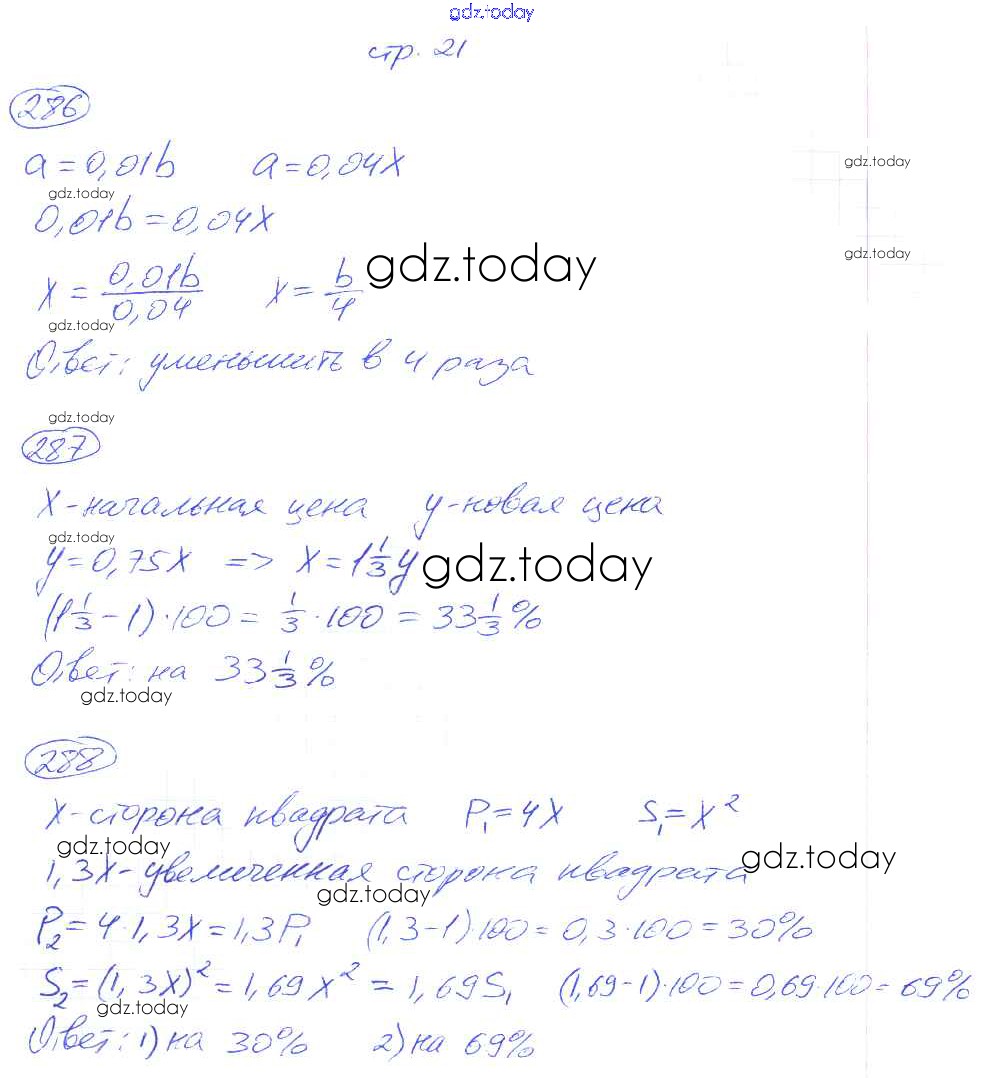 gdz.today
стр. 21
286
a = 0,01b a = 0,04x
gdz.today
gdz.today
0,01b = 0,04x
gdz.today
x = 0,01b/0,04 x = b/4 gdz.today
gdz.today
Ответ: уменьшить в 4 раза
gdz.today
287
x - начальная цена y - новая цена
gdz.today
y = 0,75x => x = 1 1/3 y gdz.today
(1 1/3 - 1) · 100 = 1/3 · 100 = 33 1/3 %
Ответ: на 33 1/3 %
gdz.today
288
x - сторона квадрата P₁ = 4x S₁ = x²
gdz.today gdz.today
1,3x - увеличенная сторона квадрата
gdz.today
P₂ = 4 · 1,3x = 1,3P₁ (1,3 - 1) · 100 = 0,3 · 100 = 30%
S₂ = (1,3x)² = 1,69x² = 1,69S₁ (1,69 - 1) · 100 = 0,69 · 100 = 69%
gdz.today
Ответ: 1) на 30% 2) на 69%